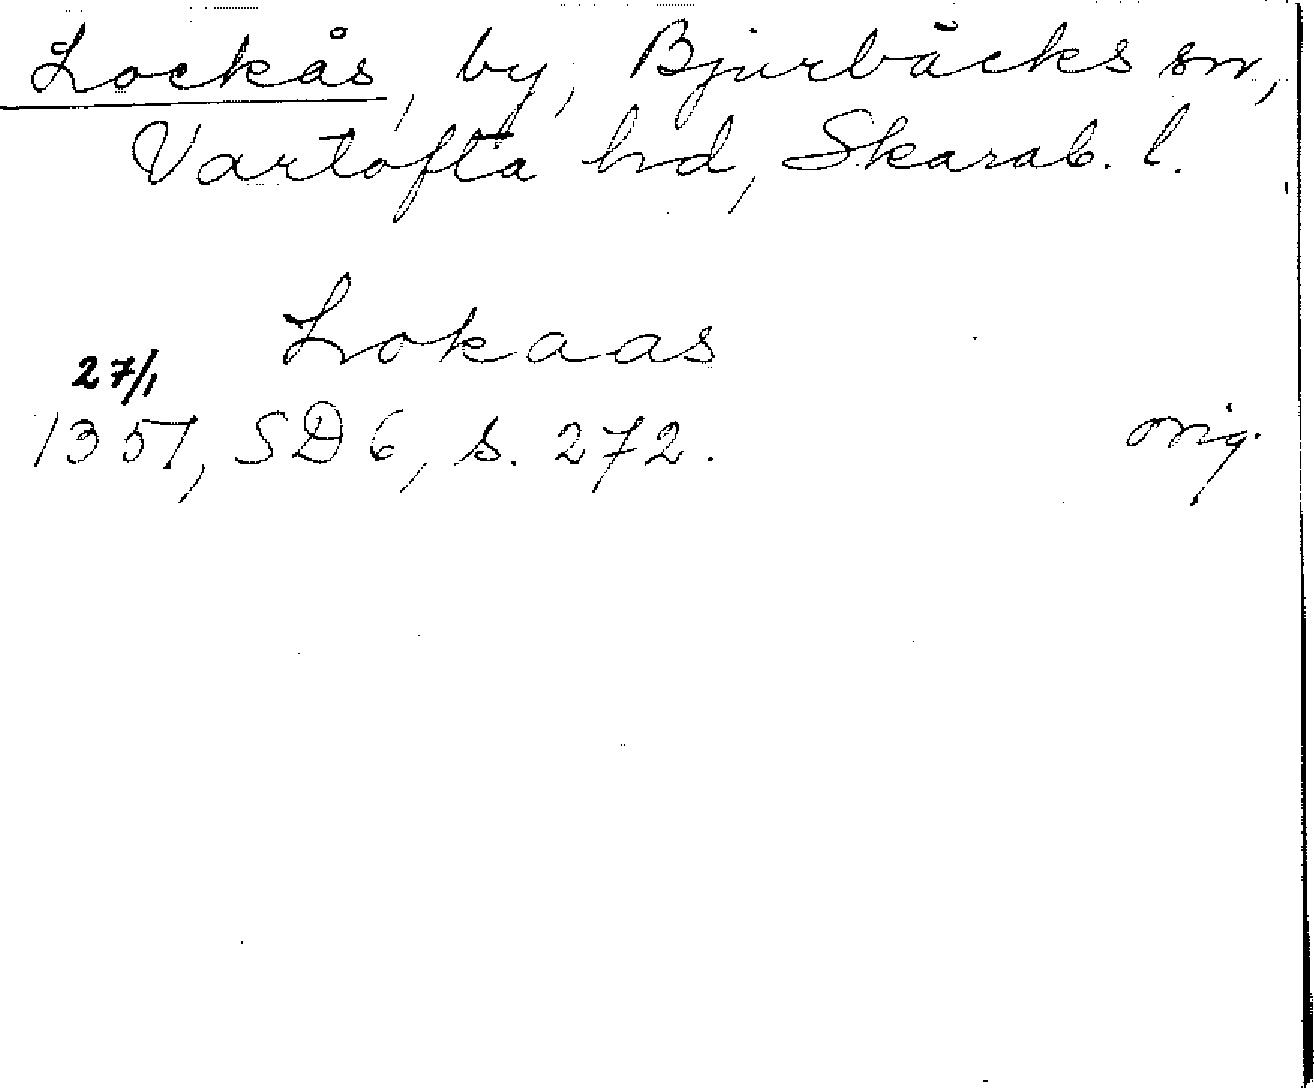 Lockås, by, Bjurbäcks sn,
Vartofta hd, Skarab. l.
Lokaas
27/1
1351, SD 6, s. 272.
orig.